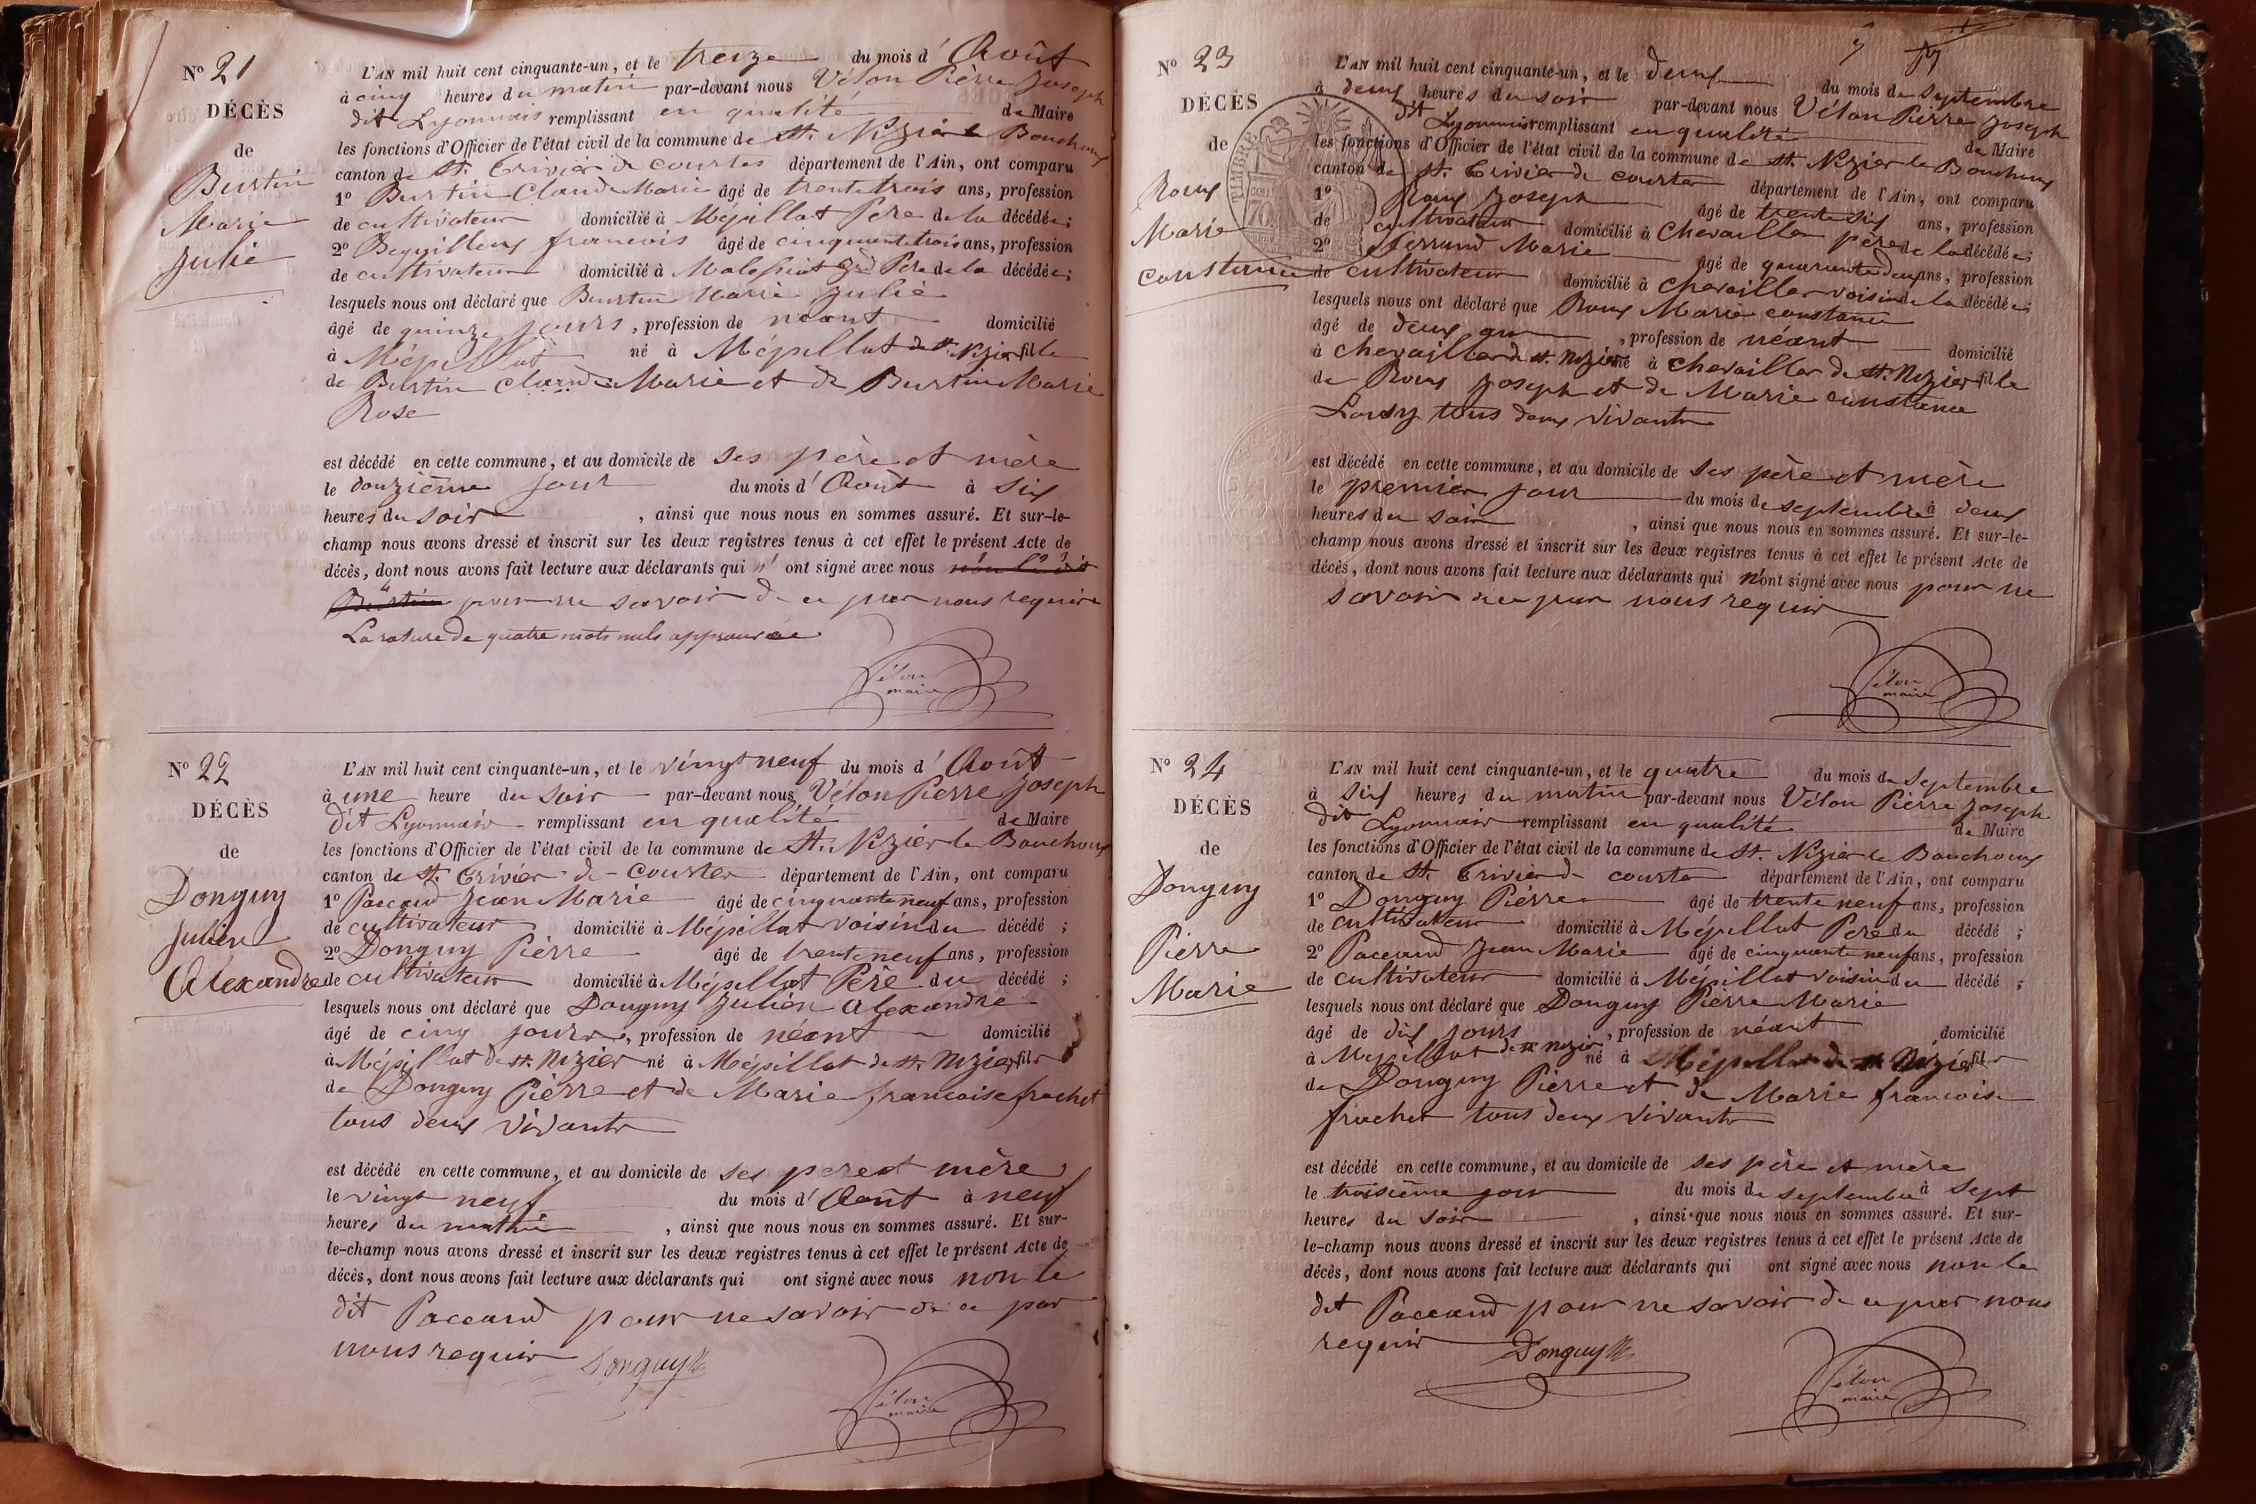 N° 21
DÉCÈS
de
Burtin
Marie
Julie
L'AN mil huit cent cinquante-un, et le treize du mois d'Août
à cinq heures du matin par-devant nous Vélon Pierre Joseph
dit Lyonnais remplissant en qualité de Maire
les fonctions d'Officier de l'état civil de la commune de St. Nizier le Bouchoux
canton de St. Trivier de Courtes département de l'Ain, ont comparu
1° Burtin Claude Marie âgé de trente trois ans, profession
de cultivateur domicilié à Mépillat Père de la décédée;
2° francois âgé de cinquante trois ans, profession
de cultivateur domicilié à Malafretat grd Père de la décédée;
lesquels nous ont déclaré que Burtin Marie Julie
âgé de quinze jours, profession de néant domicilié
à Mépillat né à Mépillat de st. Nizier fille
de Burtin Claude Marie et de Burtin Marie
Rose
est décédé en cette commune, et au domicile de ses père et mère
le douzième jour du mois d'Août à six
heures du soir, ainsi que nous nous en sommes assuré. Et sur-le-
champ nous avons dressé et inscrit sur les deux registres tenus à cet effet le présent Acte de
décès, dont nous avons fait lecture aux déclarants qui n'ont signé avec nous
Burtin pour ne savoir de ce par nous requis
La rature de quatre mots nuls approuvée
Vélon
maire
N° 22
DÉCÈS
de
Donguy
Julien
Alexandre
L'AN mil huit cent cinquante-un, et le vingt neuf du mois d'Août
à une heure du soir par-devant nous Vélon Pierre Joseph
dit Lyonnais remplissant en qualité de Maire
les fonctions d'Officier de l'état civil de la commune de St. Nizier le Bouchoux
canton de St. Trivier de Courtes département de l'Ain, ont comparu
1° Paccaud Jean Marie âgé de cinquante neuf ans, profession
de cultivateur domicilié à Mépillat voisin du décédé;
2° Donguy Pierre âgé de trente neuf ans, profession
de cultivateur domicilié à Mépillat Père du décédé;
lesquels nous ont déclaré que Donguy Julien Alexandre
âgé de cinq jours, profession de néant domicilié
à Mépillat de st. Nizier né à Mépillat de st. Nizier fils
de Donguy Pierre et de Marie francoise frachet
tous deux vivants
est décédé en cette commune, et au domicile de ses pere et mère
le vingt neuf du mois d'Août à neuf
heures du matin, ainsi que nous nous en sommes assuré. Et sur-
le-champ nous avons dressé et inscrit sur les deux registres tenus à cet effet le présent Acte de
décès, dont nous avons fait lecture aux déclarants qui ont signé avec nous non le
dit Paccaud pour ne savoir de ce par
nous requis Donguy
Vélon
maire
N° 23
DÉCÈS
de
Roux
Marie
constance
TIMBRE
L'AN mil huit cent cinquante-un, et le deux du mois de Septembre
à deux heures du soir par-devant nous Vélon Pierre Joseph
dit Lyonnais remplissant en qualité de Maire
les fonctions d'Officier de l'état civil de la commune de St. Nizier le Bouchoux
canton de St. Trivier de courtes département de l'Ain, ont comparu
1° Roux Joseph âgé de trente six ans, profession
de cultivateur domicilié à Chevailler père de la décédée;
2° Ferrand Marie âgé de quarante deux ans, profession
de cultivateur domicilié à Chevailler voisin de la décédée;
lesquels nous ont déclaré que Roux Marie constance
âgé de deux ans, profession de néant domicilié
à Chevailler de st. Nizier né à Chevailler de st. Nizier fille
de Roux Joseph et de Marie constance
Loisy tous deux vivants
est décédé en cette commune, et au domicile de ses père et mère
le premier jour du mois de septembre à deux
heures du soir, ainsi que nous nous en sommes assuré. Et sur-le-
champ nous avons dressé et inscrit sur les deux registres tenus à cet effet le présent Acte de
décès, dont nous avons fait lecture aux déclarants qui n'ont signé avec nous pour ne
savoir de ce par nous requis
Vélon
maire
N° 24
DÉCÈS
de
Donguy
Pierre
Marie
L'AN mil huit cent cinquante-un, et le quatre du mois de Septembre
à six heures du matin par-devant nous Vélon Pierre Joseph
dit Lyonnais remplissant en qualité de Maire
les fonctions d'Officier de l'état civil de la commune de St. Nizier le Bouchoux
canton de St. Trivier de courtes département de l'Ain, ont comparu
1° Donguy Pierre âgé de trente neuf ans, profession
de cultivateur domicilié à Mépillat Père du décédé;
2° Paccaud Jean Marie âgé de cinquante neuf ans, profession
de cultivateur domicilié à Mépillat voisin du décédé;
lesquels nous ont déclaré que Donguy Pierre Marie
âgé de dix jours, profession de néant domicilié
à Mépillat de st nizier né à Mépillat de st Nizier fils
de Donguy Pierre et de Marie francoise
frachet tous deux vivants
est décédé en cette commune, et au domicile de ses père et mère
le troisième jour du mois de septembre à sept
heures du soir, ainsi que nous nous en sommes assuré. Et sur-
le-champ nous avons dressé et inscrit sur les deux registres tenus à cet effet le présent Acte de
décès, dont nous avons fait lecture aux déclarants qui ont signé avec nous non le
dit Paccaud pour ne savoir de ce par nous
requis Donguy
Vélon
maire